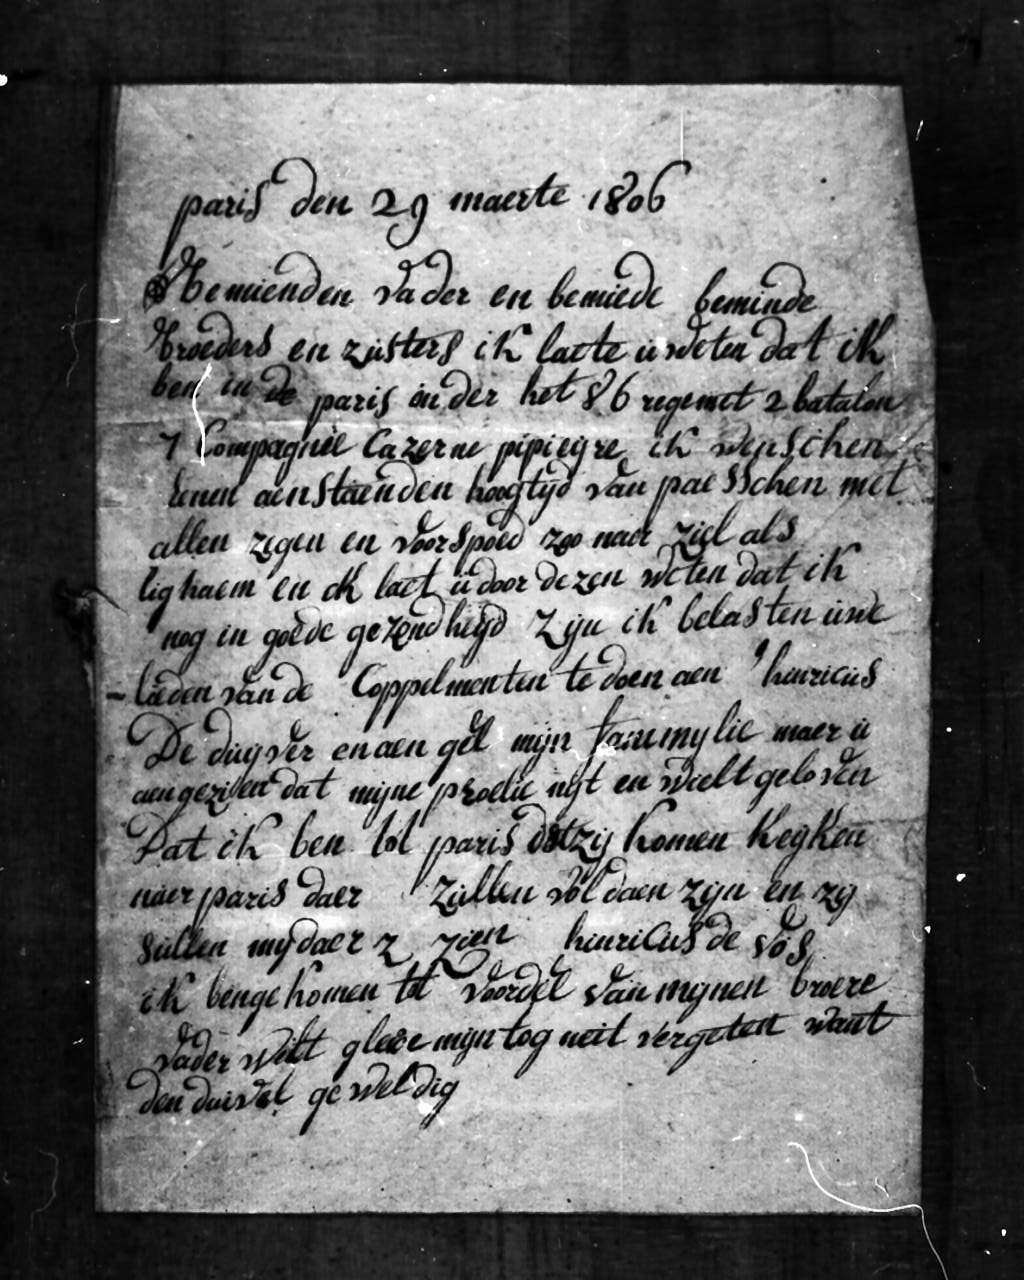 paris den 29 maerte 1806
Bemienden vader en bemiede beminde
broeders en zusters ik laete u weten dat ik
ben in de paris onder het 86 regemet 2 batalon
7 Compagniie Cazerne pipiegre ik wenschen
aenstaenden hoogtijd van paesschen met
allen zegen en voorspoed zoo naer ziel als
lighaem en ik laet u door dezen weten dat ik
nog in goede gezondheyd zijn ik belasten uwe
lieden van de Coppelmenten te doen aen hinricus
De duyver en aen gel mijn fammylie maer u
aengezien dat mijne proelie nijt en wielt geloven
Dat ik ben tot paris dat zij komen keyken
naer paris daer zullen vol daen zyn en zy
sullen my daer z zien hinricus de vos
ik benge komen tot voordel van mynen broere
vader wilt gleve mijn tog neit vergeten want
den duivel geweldig